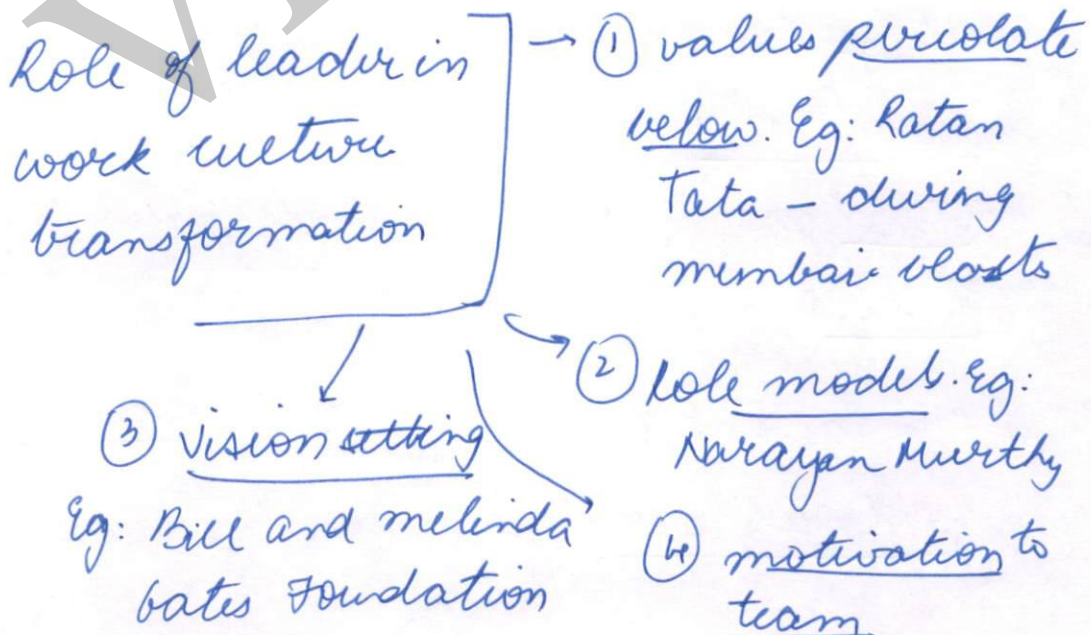 Role of leader in
work culture
transformation
→ ① values percolate
below. Eg: Ratan
Tata – during
mumbai blasts
② Role model. Eg:
Narayan Murthy
③ Vision setting
Eg: Bill and melinda
Gates Foundation
④ motivation to
team